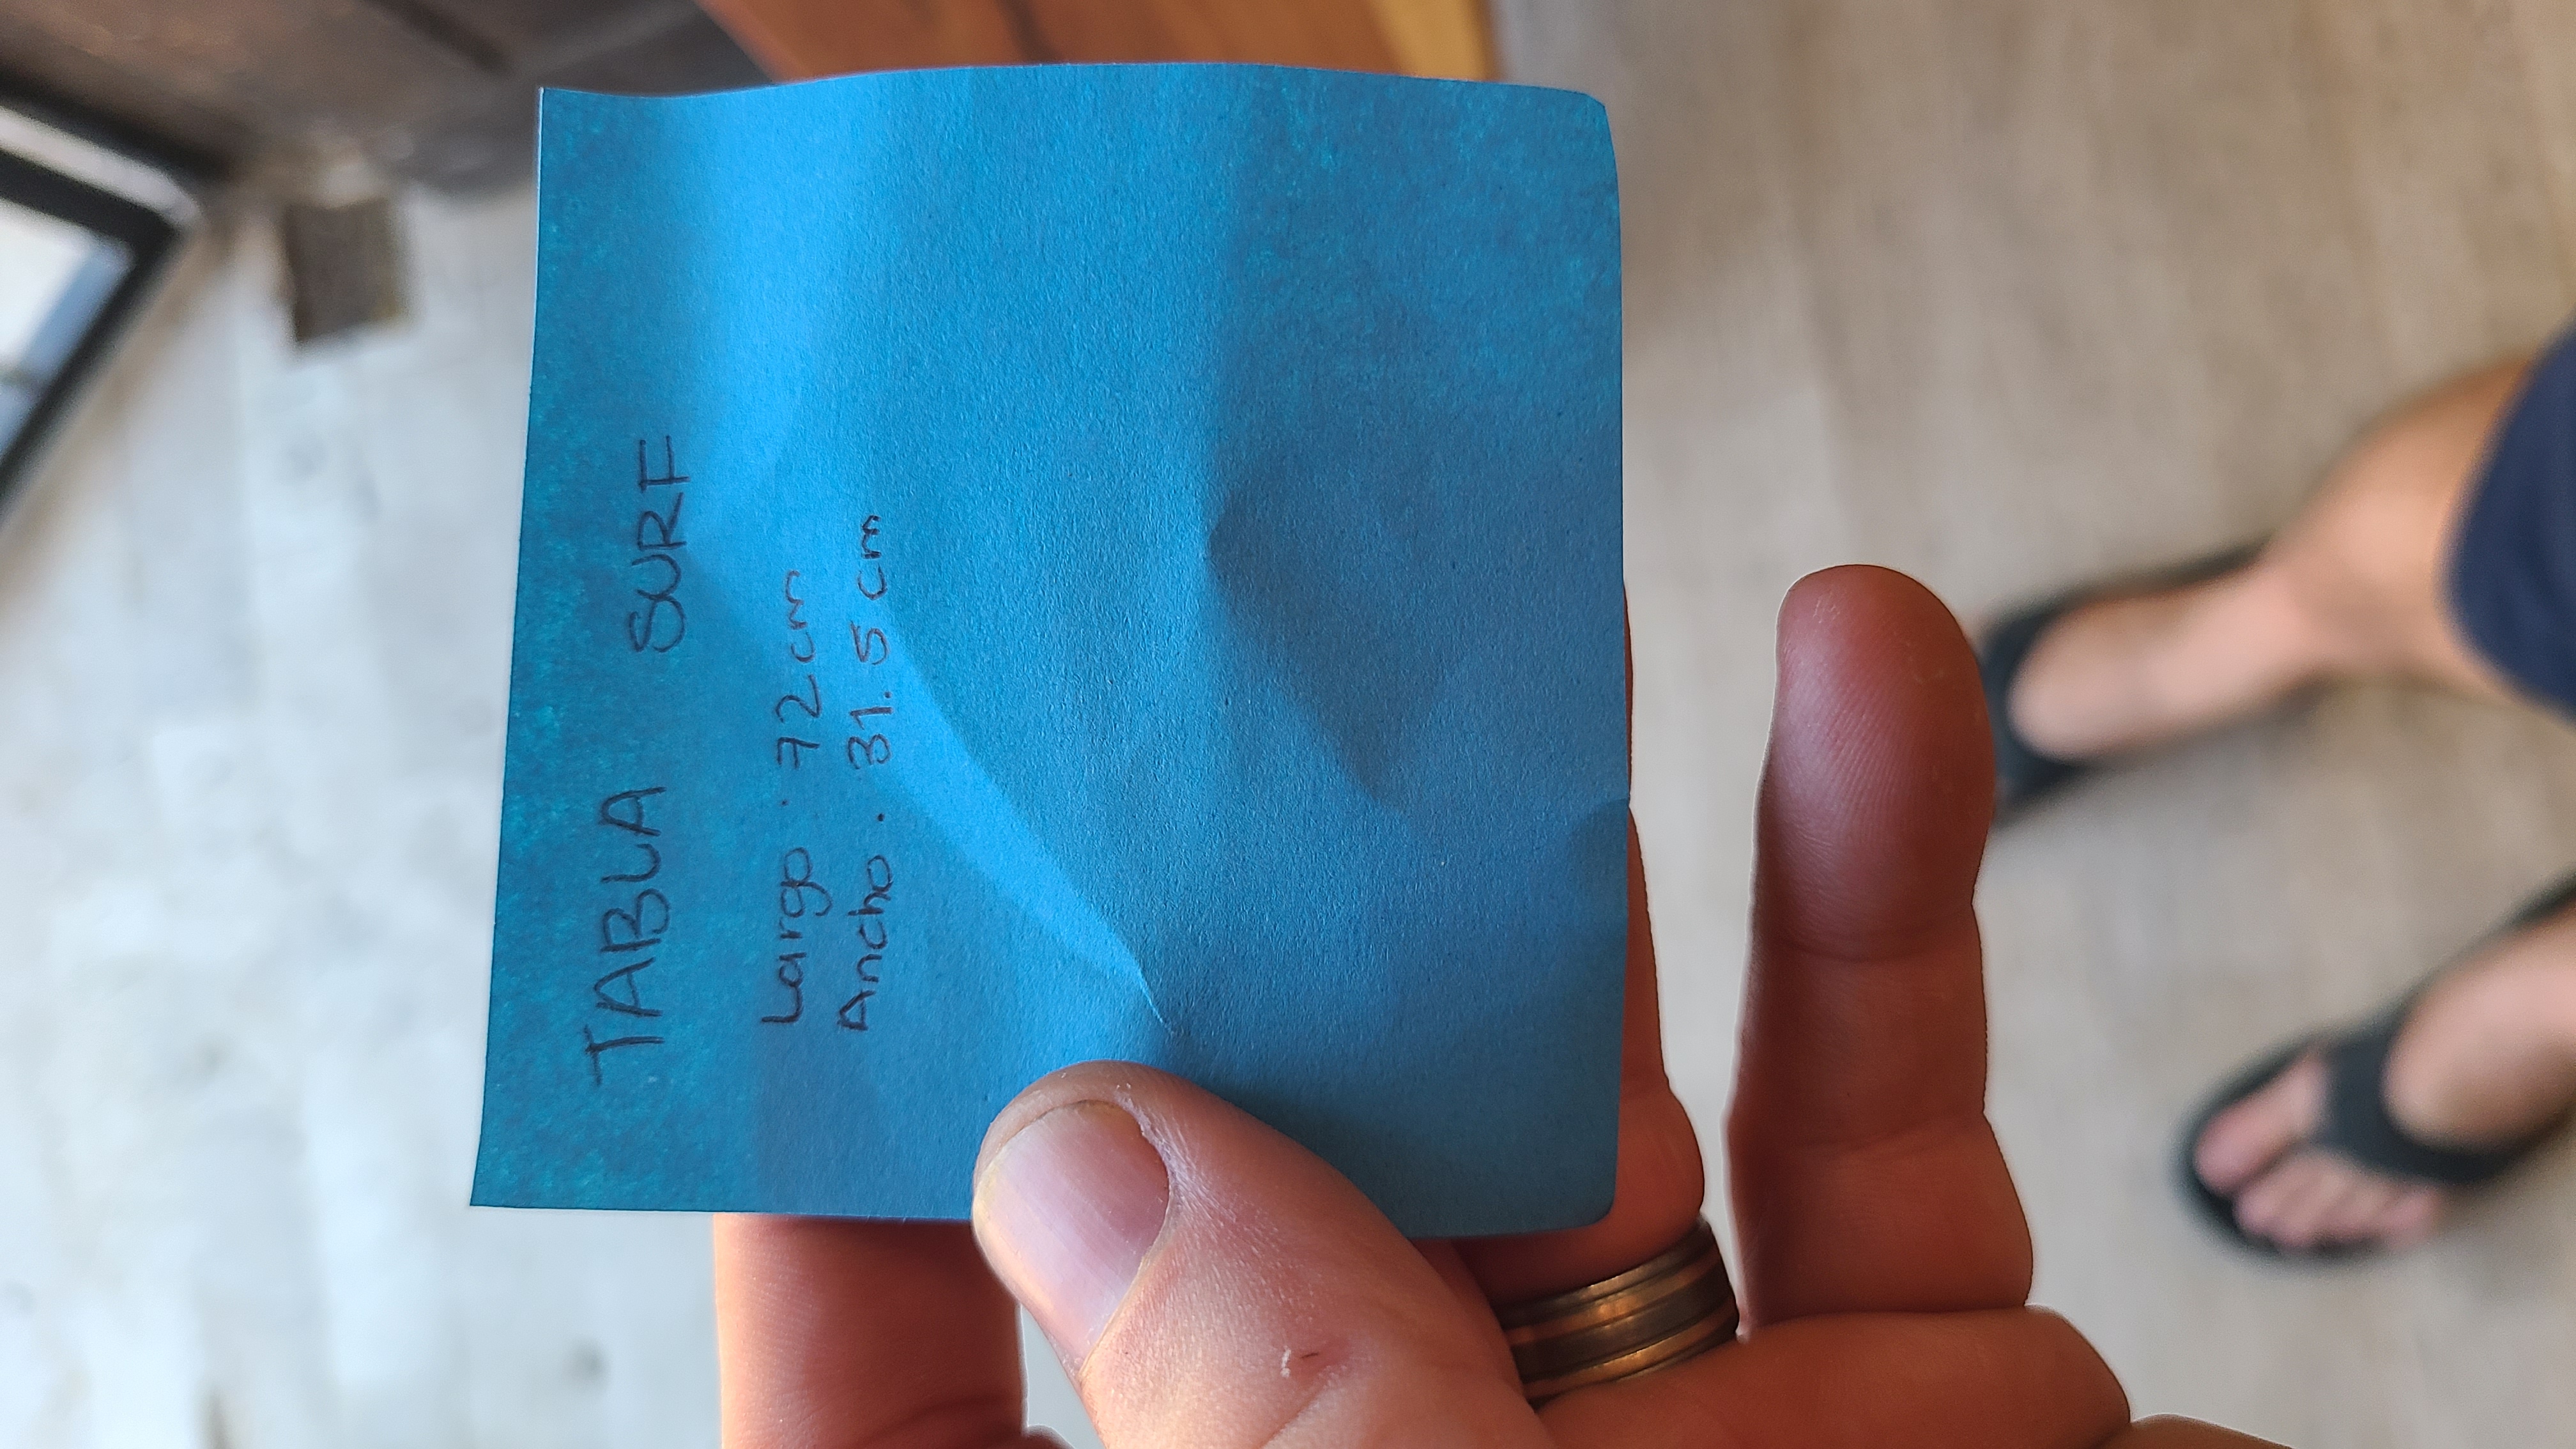 TABLA SURF
Largo : 72 cm
Ancho . 31.5 cm